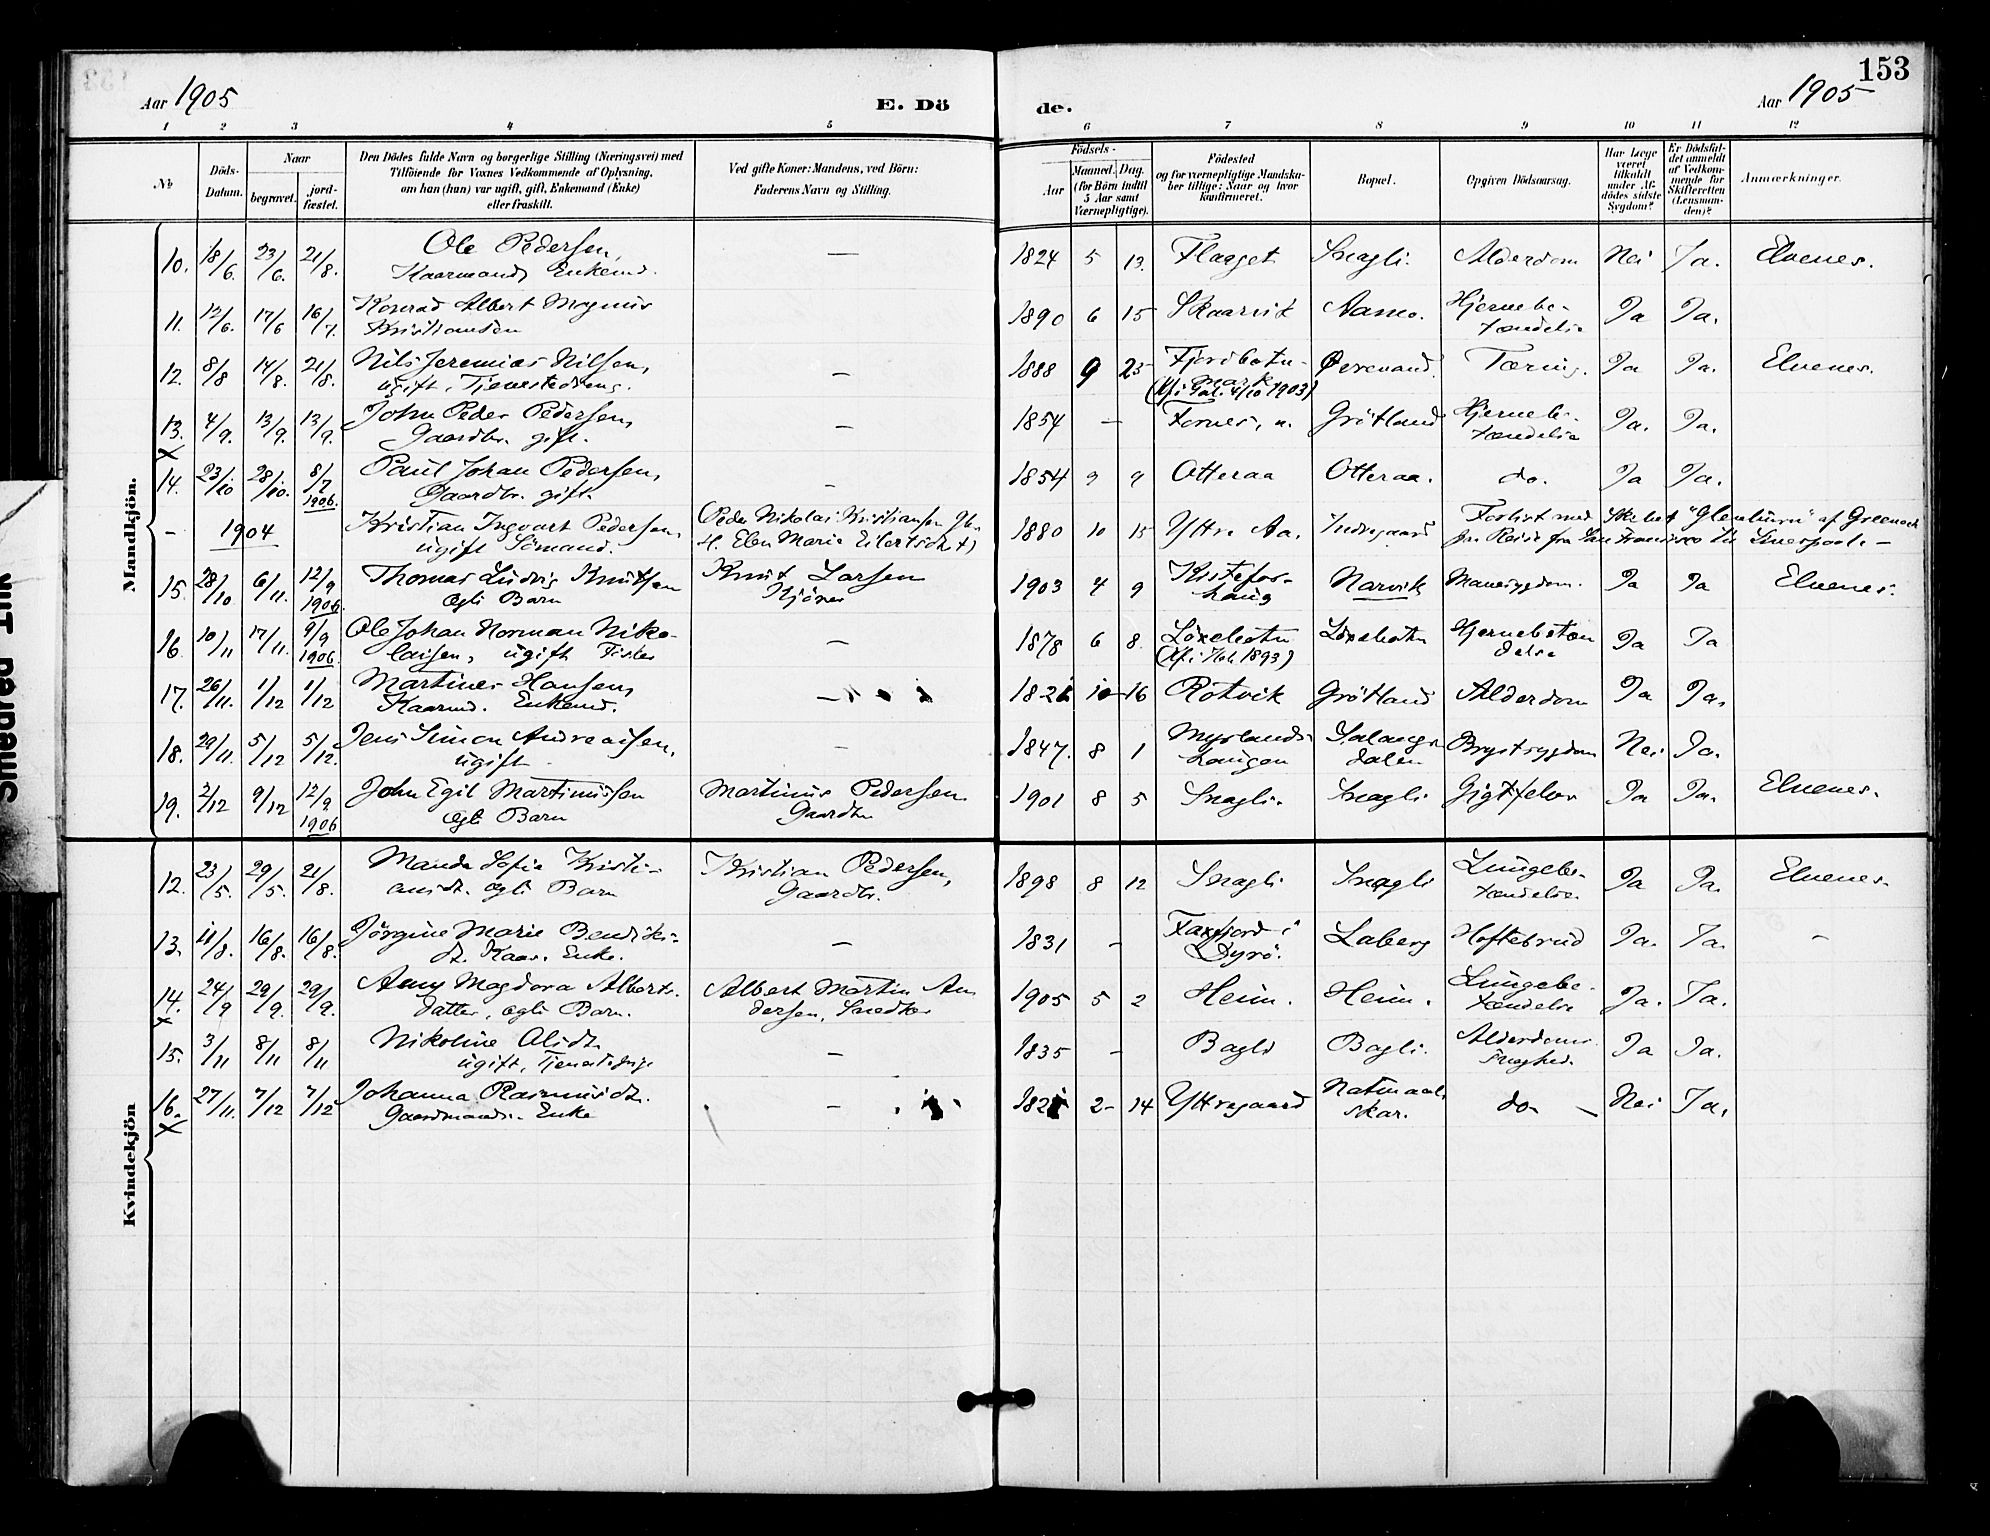 153
Aar 1905
E. Dö
de.
Aar 1905
1 2 3 4 5 6 7 8 9 10 11 12
No
Döds-Datum.
Naar
begravet.
jord-fæstet.
Den Dödes fulde Navn og borgerlige Stilling (Næringsvei) med
Tilföiende for Voxnes Vedkommende af Oplysning,
om han (hun) var ugift, gift, Enkemand (Enke)
eller fraskilt.
Ved gifte Koner: Mandens, ved Börn:
Faderens Navn og Stilling.
Födsels-
Aar
Maaned. Dag.
(for Börn indtil
5 Aar samt
Værnepligtige).
Födested
og for værnepligtige Mandska-
ber tillige: Naar og hvor
konfirmeret.
Bopæl.
Opgiven Dödsaarsag.
Har Læge
været
tilkaldt
under Af-
dödes sidste
Sygdom?
Er Dödsfal-
det anmeldt
af Vedkom-
mende for
Skifteretten
(Lensman-
den)?
Anmærkninger.
Mandkjön.
10. 18/6. 23/6. 21/8. Ole Pedersen, — 1824 5 13. Flaaget Snagli. Alderdom Nei Ja. Elvenes.
Kaarmand, Enkemd.
11. 12/6. 17/6 16/7. Konrad Albert Magnus 1890 6 15 Skaarvik Aamo. Hjernebe- Ja Ja.
Kristiansen tændelse
12. 8/8 14/8. 21/8. Nils Jeremias Nilsen, — 1888 9 25 Fjordbotn- Øvrevand. Tæring. Ja Ja. Elvenes.
ugift, Tjenestedreng. mark
4/10 1903)
13. 4/9. 13/9. 13/9. John Peder Pedersen, — 1854 — Fornes, Grötland Hjernebe- Ja. Ja.
Gaardbr. gift. tændelse
X
14. 23/10 28/10. 8/7 1906. Paul Johan Pedersen, — 1854 9 9 Otteraa Otteraa. do. Ja Ja.
Gaardbr. gift.
— 1904 Kristian Ingvart Pedersen, Peder Nikolai Kristiansen 1880 10 15 Yttre Aa. Indregaard Forlist med Skibet "Glenburn" af Greenock
ugift Sömand. H. Elen Marie Eilertsdtr. paa Reise fra San Francisco til Liverpool. —
15. 28/10 6/11. 12/9 1906. Thomas Ludvig Knutsen Knut Larsen 1903 4 9 Kistefos- Narvik Mavesygdom. Ja Ja Elvenes.
ægte Barn haug
16. 10/11 17/11. 9/9 1906. Ole Johan Norman Niko- — 1878 6 8. Löxebotn Löxebotn Hjernebetæn Ja Ja
laisen, ugift Fisker 1893) delse
17. 26/11. 1/12 1/12 Martines Hansen, — 10 16 Rotvik Grötland Alderdom Ja Ja.
Kaarmd. Enkemd.
18. 29/11. 5/12 5/12. Jens Simon Andreassen, — 1847. 8 1 Myrlands- Salangs- Brystsygdom Nei Ja.
ugift haugen dalen
19. 2/12 9/12 12/9 1906 John Egil Martinussen Martinus Pedersen 1901 8 5 Snagli. Snagli Gigtfeber Ja Ja. Elvenes.
ægte Barn Gaardbr.
Kvindekjön
12. 23/5. 29/5. 21/8. Manda Sofie Kristi- Kristian Pedersen, 1898 8 12 Snagli Snagli Lungebe- Ja Ja. Elvenes.
ansdt. ægte Barn Gaardbr. tændelse
13. 11/8. 16/8. 16/8. Jörgine Marie Bendiks- — 1831 — Faxfjord i Laberg Hoftebrud Ja. Ja. —
dt. Kaar. Enke. Dyrö.
14. 24/9 29/9. 29/9. Amy Magdora Alberts- Albert Martin An 1905 5 2 Heim. Heim. Lungebe- Ja. Ja.
datter, ægte Barn. dersen, Snedker tændelse
X
15. 3/11 8/11 8/11 Nikoline Olsdt. — 1835 — Bagli Bagli. Alderdoms- Ja Ja.
ugift, Tjenestepige svaghed.
16. 27/11. 7/12 7/12 Johanna Rasmusdt. — 2 14 Yttregaard Natmaals- do — Nei Ja.
X Gaardmands- Enke skar.